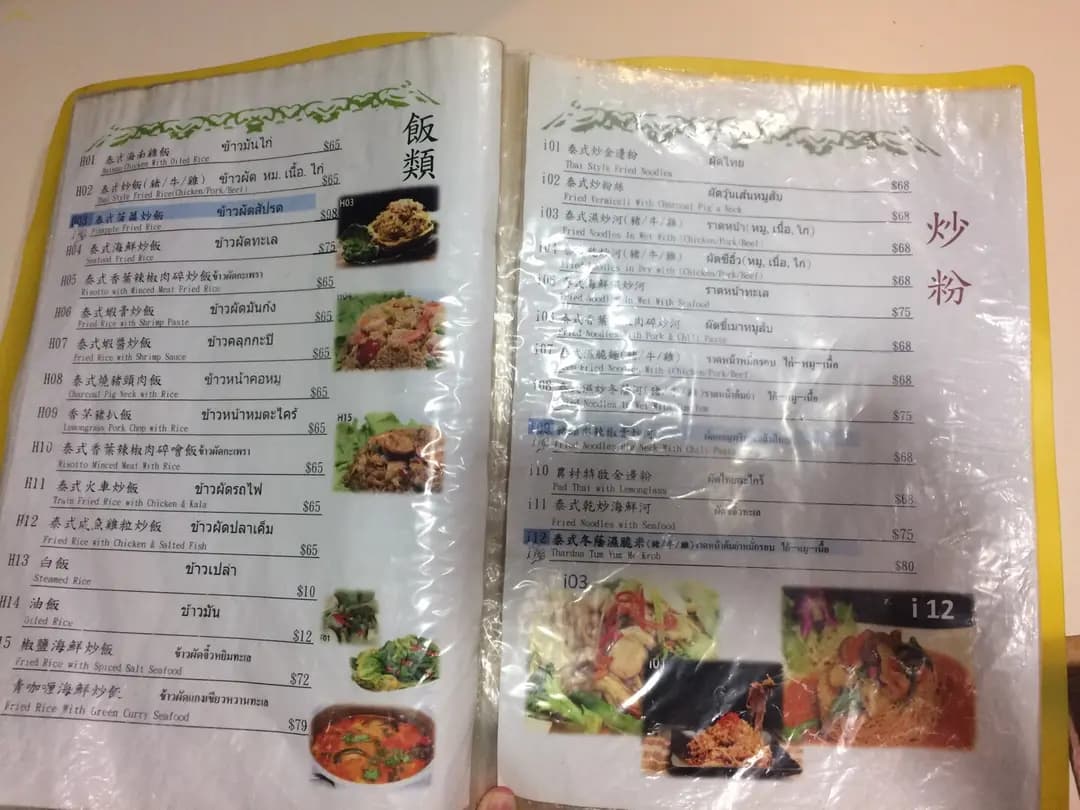 飯類
H01 泰式海南雞飯 ข้าวมันไก่ $65
Hainan Chicken With Oiled Rice
H02 泰式炒飯(豬/牛/雞) ข้าวผัด หมู, เนื้อ, ไก่ $65
Thai Style Fried Rice(Chicken/Pork/Beef)
H03 泰式菠蘿炒飯 ข้าวผัดสัปรด $98
Pineapple Fried Rice
H04 泰式海鮮炒飯 ข้าวผัดทะเล $75
Seafood Fried Rice
H05 泰式香葉辣椒肉碎炒飯 ข้าวผัดกะเพรา $65
Risotto with Minced Meat Fried Rice
H06 泰式蝦膏炒飯 ข้าวผัดมันกุ้ง $65
Fried Rice with Shrimp Paste
H07 泰式蝦醬炒飯 ข้าวคลุกกะปิ $65
Fried Rice with Shrimp Sauce
H08 泰式燒豬頸肉飯 ข้าวหน้าคอหมู $65
Charcoal Pig Neck with Rice
H09 香茅豬扒飯 ข้าวหน้าหมูตะไคร้ $65
Lemongrass Pork Chop with Rice
H10 泰式香葉辣椒肉碎噲飯 ข้าวผัดกะเพรา $65
Risotto Minced Meat With Rice
H11 泰式火車炒飯 ข้าวผัดรถไฟ $65
Train Fried Rice with Chicken & Kala
H12 泰式咸魚雞粒炒飯 ข้าวผัดปลาเค็ม $65
Fried Rice with Chicken & Salted Fish
H13 白飯 ข้าวเปล่า $10
Steamed Rice
H14 油飯 ข้าวมัน $12
Oiled Rice
15 椒鹽海鮮炒飯 $72
Fried Rice with Spiced Salt Seafood
青咖喱海鮮炒飯 ข้าวผัดแกงเขียวหวานทะเล $79
Fried Rice With Green Curry Seafood
H03
H15
i01
炒粉
i01 泰式炒金邊粉 ผัดไทย $68
Thai Style Fried Noodles
i02 泰式炒粉絲 ผัดวุ้นเส้นหมูสับ $68
Fried Vermicelli With Charcoal Pig's Neck
i03 泰式濕炒河(豬/牛/雞) ราดหน้า( หมู, เนื้อ, ไก่) $68
Fried Noodles In Wet With (Chicken/Pork/Beef)
i04 炒河(豬/牛/雞) ผัดซีอิ๊ว( หมู, เนื้อ, ไก่) $68
Noodles in Dry with (Chicken/Pork/Beef)
i05 海鮮濕炒河 ราดหน้าทะเล $75
Fried Noodles In Wet With Seafood
泰式香葉 肉碎炒河 ผัดขี้เมาหมูสับ $68
Fried Noodles with Pork & Chili Paste
i07 泰式濕脆麵(豬/牛/雞) $68
Fried Noodles With (Chicken/Pork/Beef
濕炒冬蔭河(豬/ $75
辣椒膏炒河 $68
Fried Noodles Pig Neck With Chili Paste
i10 農村特啟金邊粉 ผัดไทยตะไคร้ $68
Pad Thai with Lemonglass
i11 泰式乾炒海鮮河 $75
Fried Noodles with Seafood
i12 泰式冬蔭濕脆米(豬/牛/雞) $80
Thardna Tum Yum Me Krob
i03
i01
i 12